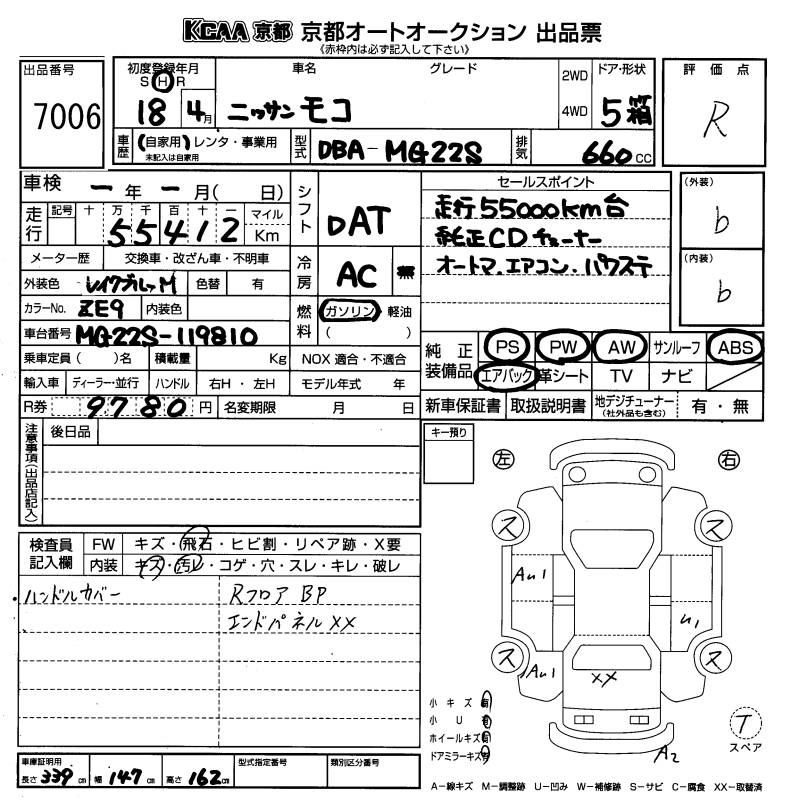 KCAA 京都 京都オートオークション 出品票
《赤枠内は必ず記入して下さい》
出品番号
7006
初度登録年月 車名 グレード 2WD ドア・形状
S H R
18 4月 ニッサン モコ 4WD 5 箱
車歴 (自家用)レンタ・事業用 型式 DBA-MG22S 排気 660 CC
未記入は自家用
評価点
R
車検 ー年ー月( 日) シフト DAT
走行 記号 十 万 千 百 十 一 マイル
55412 Km
メーター歴 交換車・改ざん車・不明車 冷房 AC 無
外装色 レイクブルーM 色替 有
カラーNo. ZE9 内装色 燃料 ガソリン 軽油
車台番号 MG22S-119810 ( )
乗車定員( )名 積載量 Kg NOX 適合・不適合
輸入車 ディーラー・並行 ハンドル 右H・左H モデル年式 年
R券 9780 円 名変期限 月 日
セールスポイント
走行55000km台
純正CDチューナー
オートマ.エアコン.パワステ
(外装)
b
(内装)
b
純正装備品 PS PW AW サンルーフ ABS
エアバック 革シート TV ナビ
新車保証書 取扱説明書 地デジチューナー 有・無
(社外品も含む)
注意事項(出品店記入) 後日品
キー預り
左 右
検査員記入欄 FW キズ・飛石・ヒビ割・リペア跡・X要
内装 キズ・汚レ・コゲ・穴・スレ・キレ・破レ
・ハンドルカバー RフロアBP
エンドパネルXX
ス ス
AU1
U1
ス AU1 XX ス
小キズ 有
小U 有
ホイールキズ 有
ドアミラーキズ 有
A2
T
スペア
車庫証明用 型式指定番号 類別区分番号
長さ 339cm 幅 147cm 高さ 162cm
A-線キズ M-調整跡 U-凹み W-補修跡 S-サビ C-腐食 XX-取替済